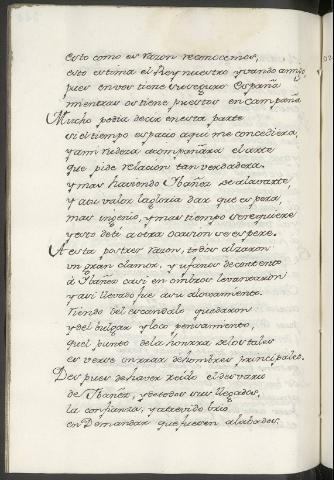 esto como es razon reconocemos,
esto estima el Rey nuestro y vando amigo,
pues en vos tiene sosseguro España
mientras os tiene puestos en campaña
Mucho podia decir en esta parte
si el tiempo espacio aqui me concediera,
y a mi rudeza acompañara el arte
que pide relación tan verdadera
y mas haviendo Ibáñez de alavarte,
y a tu valor la gloria dar que espera,
mas ingenio, y mas tiempo se requiere
y esto de ti a otra ocasion se espere.
A esta postrer razon, todos alzaron
un gran clamor, y ufanos de contento
à Ibáñez casi en ombros levantaron
y asi llevado fue a su alojamiento.
Riendo del escandalo quedaron
y del bulgar y loco pensamiento,
quel punto de la honrra de los tales
es verse en voz de hombres principales.
Despues de haver reido el desvario
de Ibáñez, y de todos sus llegados,
la confianza, y atrevido brio
en Demandar que fuesen alabados.